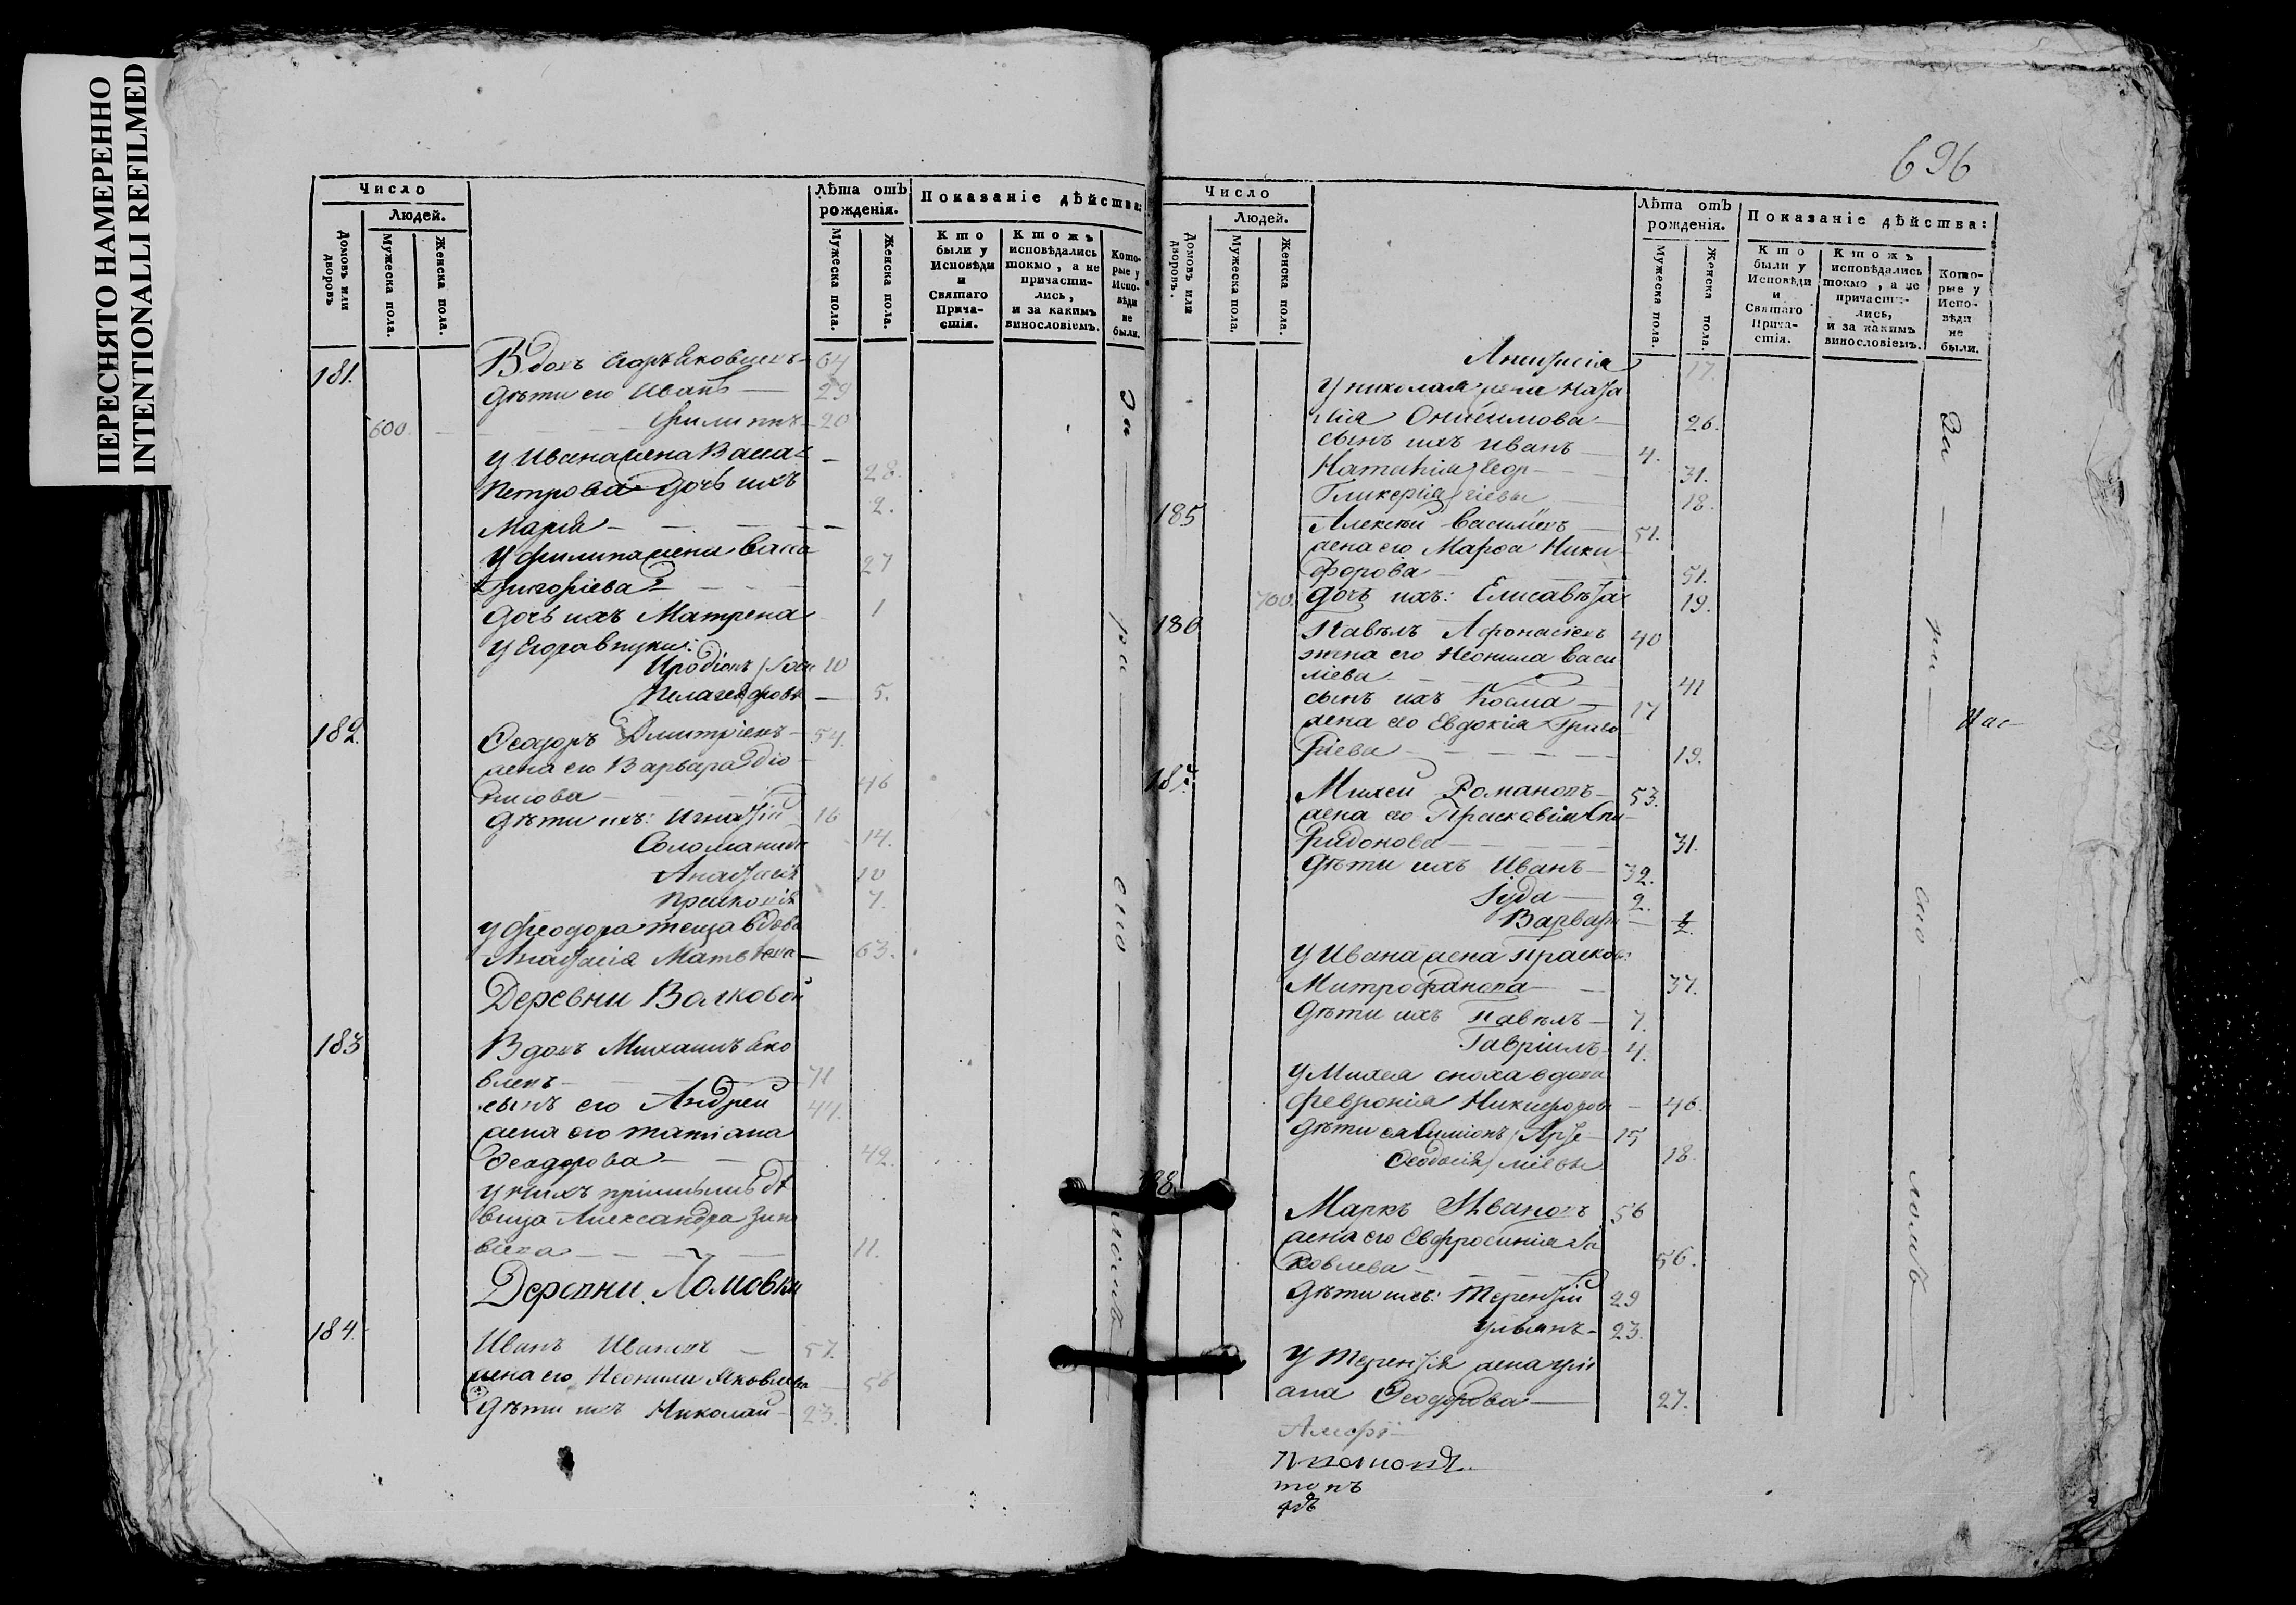 ПЕРЕСНЯТО НАМЕРЕННО
INTENTIONALLI REFILMED
696
Число
Людей.
Домовъ или дворовъ
Мужеска пола.
Женска пола.
Лѣта отъ рожденія.
Мужеска пола.
Женска пола.
Показаніе дѣйства:
Кто были у Исповѣди и Святаго Прича-стія.
Ктожъ исповѣдались токмо, а не причасти-лись, и за какимъ винословіемъ.
Кото-рые у Испо-вѣди не были.
181. Вдовъ Егоръ Яковлевъ 64
Дѣти его Иванъ 29
600. Филиппъ 20
у Ивана жена Васса
Петрова 28.
дочь ихъ
Марія 2.
у Филипа жена Васса
Григоріева 27
дочь ихъ Матрена 1
у Егора внуки:
Иродіонъ 10
Пелагея 5.
182. Ѳеодоръ Димитріевъ 54.
жена его Варвара Діо
нисова 46
дѣти ихъ: Игнатій 16
Соломанида 14.
Анастасія 10
Прасковія 7.
у Феодора теща вдова
Анастасія Матвѣева 63.
Деревни Валковой
183 Вдовъ Михаилъ Яко
влевъ 71
сынъ его Андреи 44.
жена его татіана
Ѳеодорова 42.
у нихъ пріимышъ дѣ
вица Александра Зино
віева 11.
Деревни Ломовки
184. Иванъ Ивановъ 57.
жена его Неонила Яковлева 56
Дѣти ихъ Николаи 23.
За ри сно мовъ
Число
Людей.
Домовъ или дворовъ.
Мужеска пола.
Женска пола.
Лѣта отъ рожденія.
Мужеска пола.
Женска пола.
Показаніе дѣйства:
Кто были у Исповѣди и Святаго Прича-стія.
Ктожъ исповѣдались токмо, а не причасти-лись, и за какимъ винословіемъ.
Кото-рые у Испо-вѣди не были.
Анастасія 17.
у николая жена Ната
лія Онисимова 26.
сынъ ихъ иванъ 4.
Наталія 31.
Гликерія 18.
185 Алексѣй Василіевъ 51.
жена его Марѳа Ники
форова 51.
700. дочь ихъ: Елисавета 19.
186 Павелъ Афонасіевъ 40
жена его Неонила Васи
ліева 41
сынъ ихъ Косма 17
жена его Евдокія Григо
ріева 19.
187. Михеи Романовъ 53.
жена его Прасковія Спи
ридонова 31.
дѣти ихъ Иванъ 32.
Іуда 2.
Варвара 1/2
у Ивана жена прасков:
Митрофанова 37.
дѣти ихъ павелъ 7.
Гавріилъ 4.
у Михея сноха вдова
Февронія Никифорова 46.
дѣти ея Симіонъ 15
Ѳеодосія 18.
188 Маркъ Ивановъ 56
жена его Евфросинія Я
ковлева 56.
дѣти ихъ: Терентій 29
ульянъ 23.
у Терентія жена уліи
ана Ѳеодорова 27.